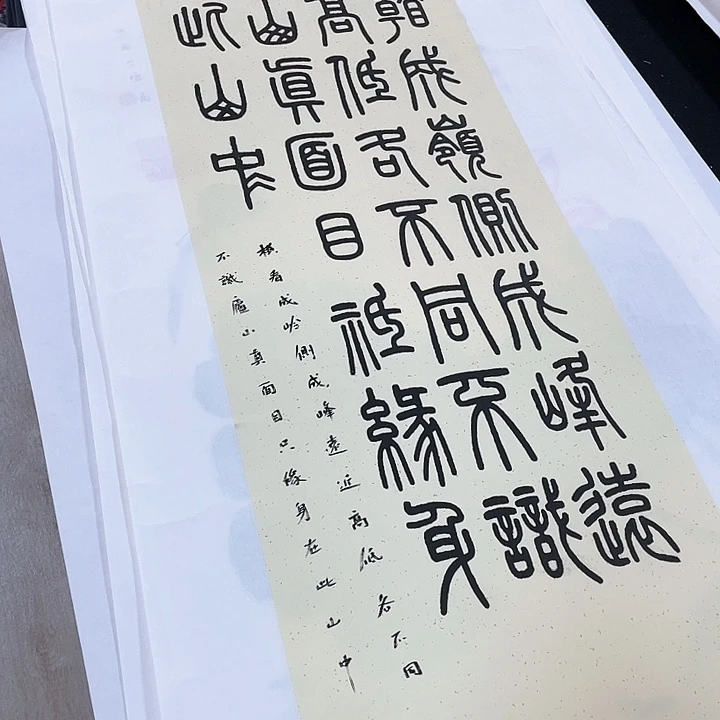 看成嶺側成峰遠
高低各不同不識
山真面目祇緣身
此山中
横看成岭側成峰遠近高低各不同
不識廬山真面目只緣身在此山中